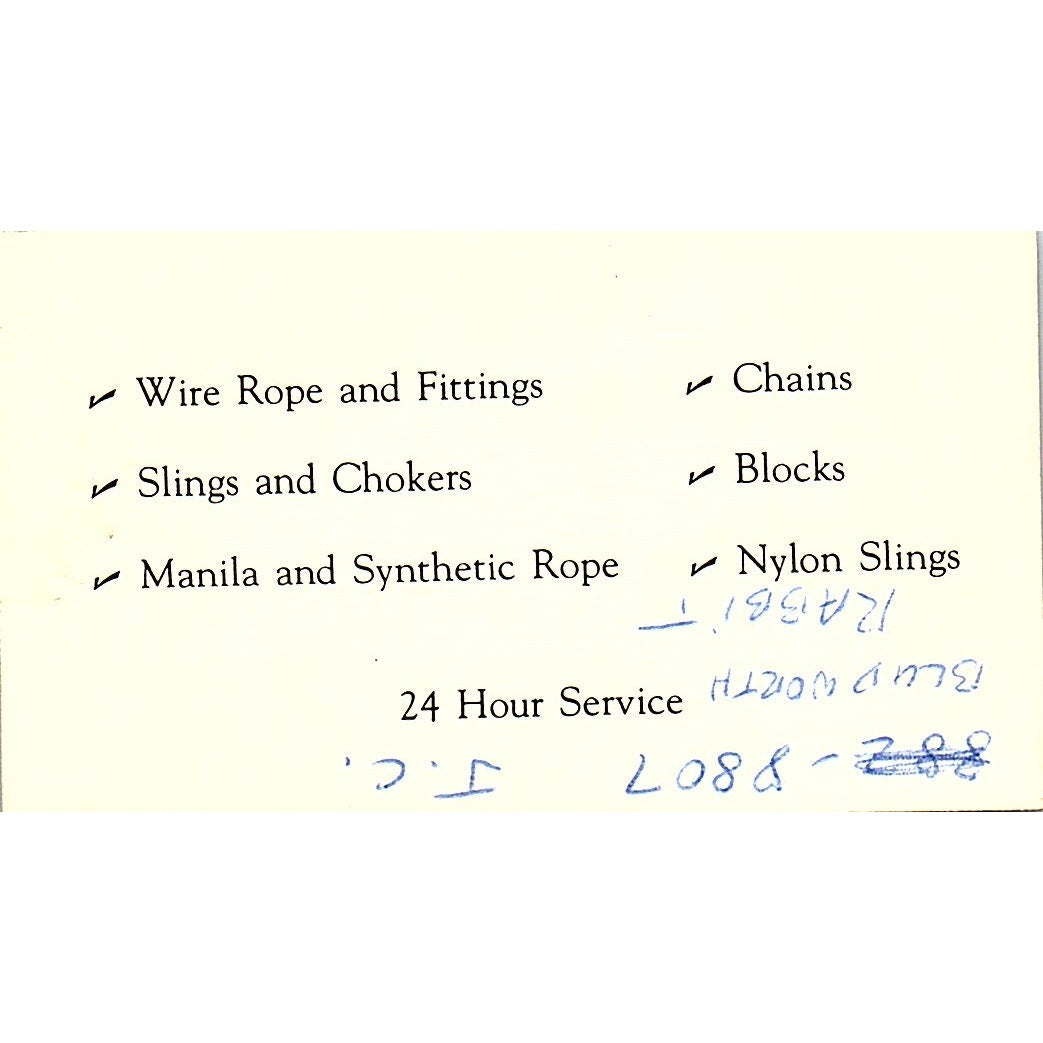 ✓ Wire Rope and Fittings ✓ Chains
✓ Slings and Chokers ✓ Blocks
✓ Manila and Synthetic Rope ✓ Nylon Slings
24 Hour Service
- 8807 J.C.
BLUDWORTH
RABBIT